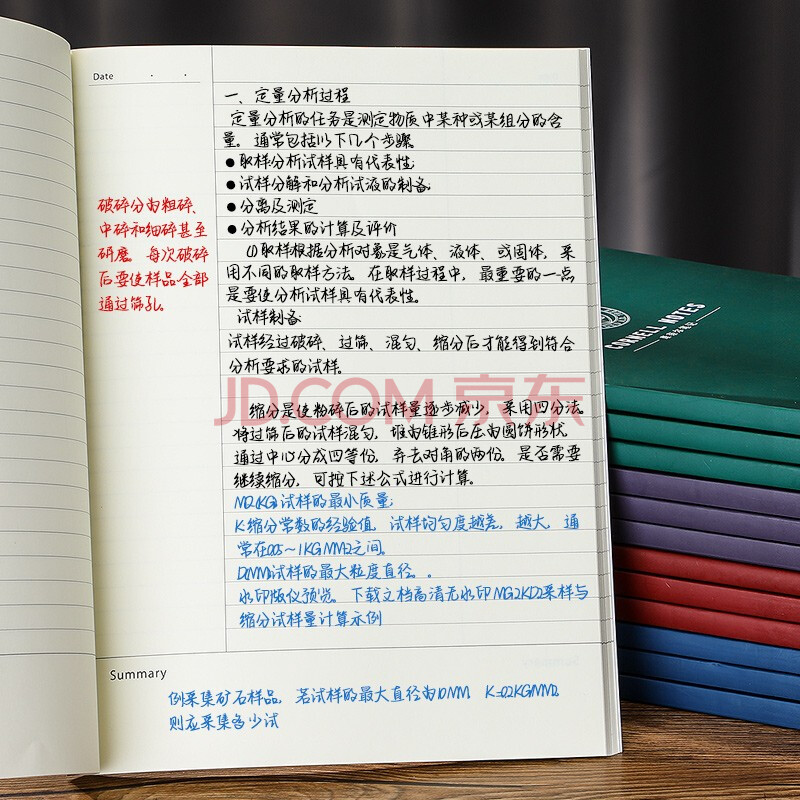 Date · ·
一、定量分析过程
定量分析的任务是测定物质中某种或某组分的含
量。通常包括以下几个步骤
●取样分析试样具有代表性;
●试样分解和分析试液的制备
●分离及测定
●分析结果的计算及评价
(1)取样根据分析对象是气体、液体、或固体，采
用不同的取样方法。在取样过程中，最重要的一点
是要使分析试样具有代表性。
试样制备:
试样经过破碎、过筛、混匀、缩分后才能得到符合
分析要求的试样。
缩分是使粉碎后的试样量逐步减少，采用四分法
将过筛后的试样混匀，堆为锥形后压为圆饼形状，
通过中心分成四等份，弃去对角的两份。是否需要
继续缩分，可按下述公式进行计算。
MQ(KG)试样的最小质量;
K缩分常数的经验值，试样均匀度越差，越大，通
常在0.05～1KG/MM2之间。
D(MM)试样的最大粒度直径。。
水印版仅预览。下载文档高清无水印MG2KD2采样与
缩分试样量计算示例
破碎分为粗碎、
中碎和细碎甚至
研磨。每次破碎
后要使样品全部
通过筛孔。
Summary
例采集矿石样品，若试样的最大直径为10MM，K=0.2KG/MM2，
则应采集多少试
JD.COM 京东
CORNELL NOTES